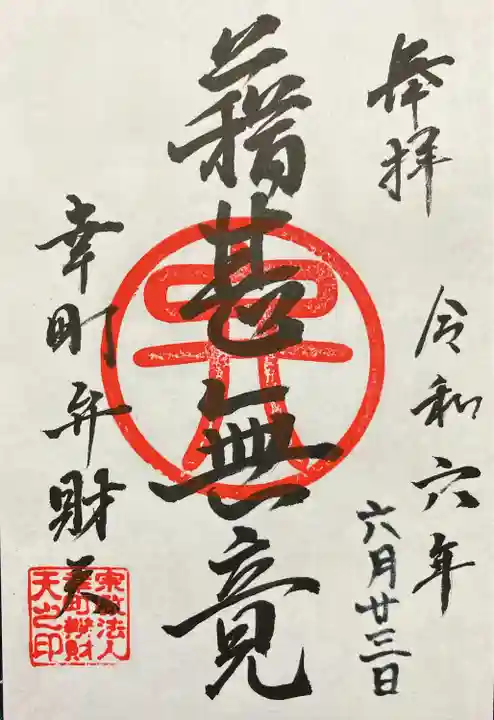 奉拝
令和六年
六月廿三日
藉甚無竟
幸町弁財天
幸町辨財
天之印